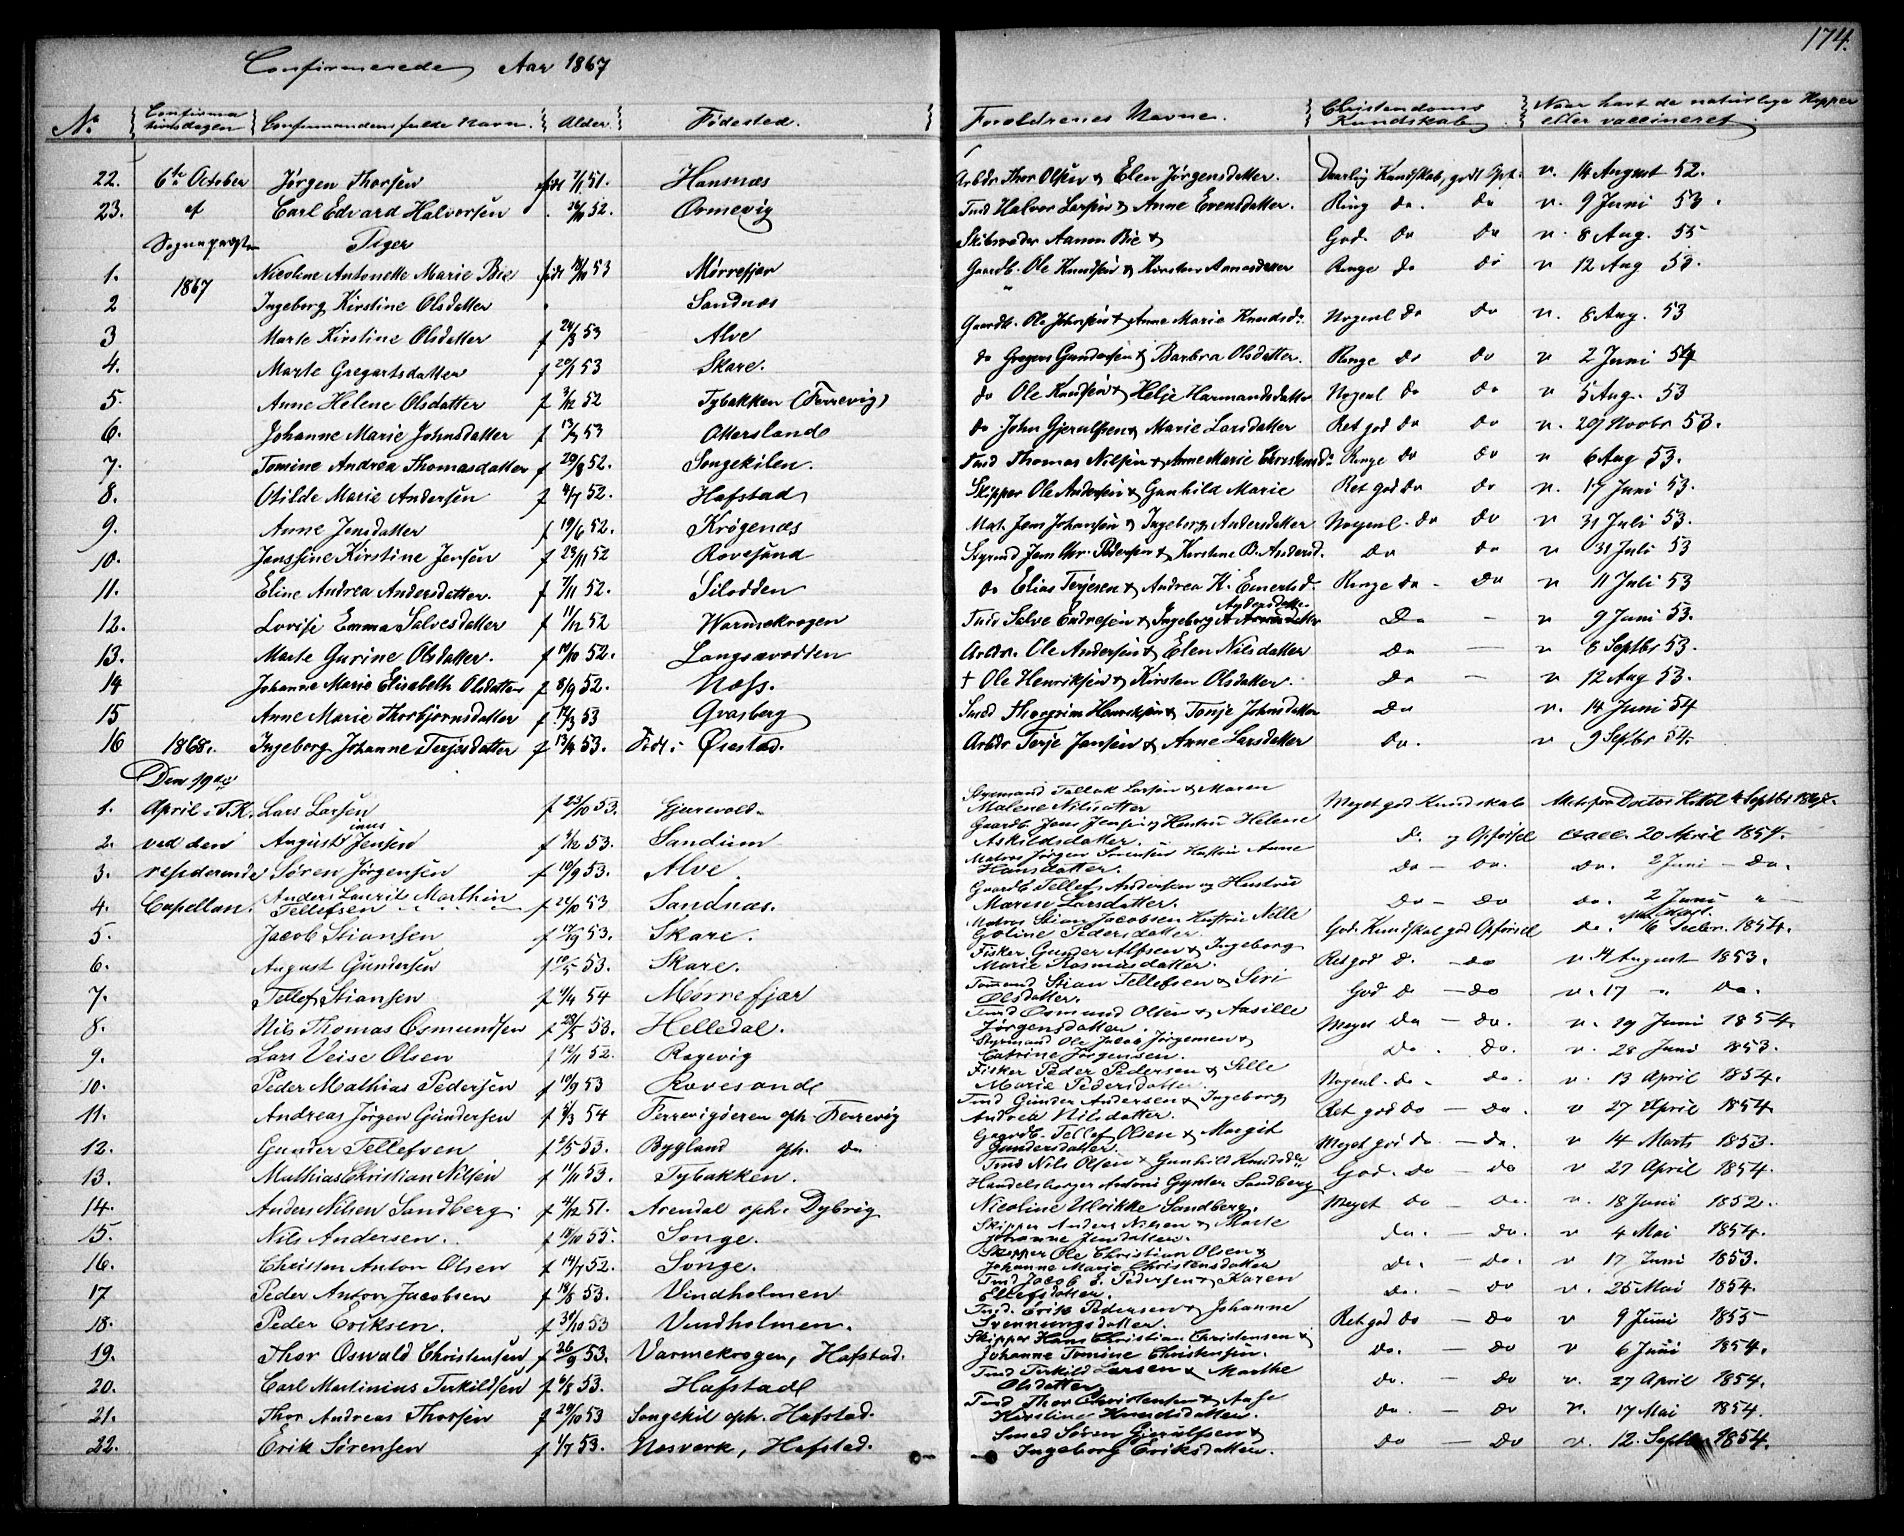 174.
Confirmerede Aar 1867
No Confirmationsdagen Confirmandens fulde Navn. Alder Födested. Forældrenes Navne. Christendoms Kundskab Naar havt de naturlige Kopper eller vaccineret
22. 6te October Jørgen Thorsen født 7/1 51. Hansnæs Arbdr Thor Olsen & Elen Jørgensdatter. Daarlig Kundskab, godt v. 14 August 52.
23. af Carl Edvard Halvorsen 52. Ormevig Tmd Halvor Larsen & Anne Evensdatter. Ring do. do v. 9 Juni 53.
Sognepræsten Piger Skibsreder Aanon Bie & God. do do v. 8 Aug. 55
1. Nicoline Antonette Marie Bie født 53 Mörrefjær Gaardb. Ole Knudsen & Kirsten Aanonsdatter Ringe do do v 12 Aug 53.
1867
2 Ingeborg Kirstine Olsdatter Sandnæs
3 Marte Kirstine Olsdatter f 24/3 53 Alve Gaardb. Ole Johnsen & Anne Marie Knudsd. Nogenl do do v. 8 Aug. 53
4. Marte Gregartsdatter f 20/1 53 Skare. do Gregers Gundersen & Barbra Olsdatter. Ringe do do v 2 Juni 54
5. Anne Helene Olsdatter f 3/12 52 Tybakken (Færevig) do Ole Knudsen & Helje Harmandsdatter Nogenl do do v 5 Aug. 53
6. Johanne Marie Johnsdatter f 53 Ottersland do John Gjerulfsen & Marie Larsdatter Ret god do do v. 29 Novbr 53.
7. Tomine Andrea Thomasdatter f 29/8 52. Songekilen. Tmd Thomas Nilsen & Anne Marie Christensd. Ringe do do v 6 Aug 53.
8. Otilde Marie Andersen f 4/7 52. Hafstad Skipper Ole Andersen & Gunhild Marie Ret god do do v. 17 Juni 53.
9. Anne Jensdatter f 19/6 52. Krøgenæs Mat. Jens Johansen & Ingeborg Andersdatter Nogenl. do do v 31 Juli 53.
10. Jensine Kirstine Jensen f 23/11 52 Rovesund Styrmd Jens Chr. Pedersen & Kirstine B. Andersd. do do v 31 Juli 53
11. Eline Andrea Andersdatter. f 7/11 52. Silodden do Elias Terjesen & Andrea K. Einertsd. Ringe do - do v 11 Juli 53
12. Lovise Emma Salvesdatter f 11/12 52 Warmekrogen Tmd Salve Endresen & Ingeborg Andersdatter Do - v 9 Juni 53.
13. Marte Gurine Olsdatter. f 52. Langsævodden Arbdr. Ole Andersen & Elen Nilsdatter do - v 8 Septbr 53.
14 Johanne Marie Elisabeth Olsdatter f 8/9 52. Næss. † Ole Henriksen & Kirsten Olsdatter. do - v 12 Aug 53.
15 Anne Marie Thorbjørnsdatter f 53 Gvasberg Smed Thorgrim Henriksen & Tonje Johnsdatter Do v. 14 Juni 54
16 1868. Ingeborg Johanne Terjesdatter f 53. Født i Øiestad. Arbdr Terje Jensen & Anne Larsdatter do. v 9 Septbr 54.
Den 19de
1. April i T.K. Lars Larsen f 23/10 53. Gjærvold. Styrmand Tellak Larsen & Maren Malene Nilsdatter Meget god Kundskab Attest fra Doctor Kittel 4 Septbr 1867.
2. ved den Augustinus Jensen f 4/12 53. Sandum Gaardb. Jens Jensen og Hustru Helene Askildsdatter. do. og Opförsel vacc. 20 April 1854.
3. residerende Sören Jørgensen f 10/9 53. Alve. Matros Jørgen Sorensen Hustru Anne Hansdatter. do - do. do. 2 Juni - do.
4. Capellan. Anders Laurits Marthin Tellefsen f 53 Sandnæs. Gaardb Tellef Andersen og Hustru Maren Larsdatter. do - do do. 2 Juni
5. Jacob Stiansen f 53. Skare. Matros Stian Jacobsen Hustru Nille Goline Pedersdatter God. Kundskab god Opførsel do. 16 Decbr. 1854.
6. August Gundersen f 10/5 53. Skare. Fisker Gunder Alfsen & Ingeborg Marie Rasmusdatter. Ret god d. - do v 14 August 1853.
7. Tellef Stiansen f 4/4 54 Mørrefjær Tømmd Stian Tellefsen & Siri Olsdatter. God do - do v. 17 " do.
8. Nils Thomas Osmundsen f 28/5 53. Helledal. Tmd Osmund Olsen & Aasille Jørgensdatter. Meget do - do. v. 19 Juni 1854.
9. Lars Veise Olsen f 12/11 52. Ragevig Styrmand Ole Jacob Jørgensen & Catrine Jørgensen. Do. do. v. 28 Juni 1853.
10. Peder Mathias Pedersen f 53 Rovesand Fisker Peder Pedersen & Sille Marie Pedersdatter. Nogenl. do - do. v. 13 April 1854.
11. Andreas Jørgen Gundersen f 4/3 54 Færevigöeren oph. Færevig Tmd Gunder Andersen & Ingeborg Andrea Nilsdatter. Ret god do - do. v 27 April 1854
12. Gunder Tellefsen f 53. Bygland oph. do Gaardb. Tellef Olsen & Margit Gundersdatter. Meget god do - do. v 14 Marts 1853.
13. Mathias Christian Nilsen f 11/11 53. Tybakken. Tmd Nils Olsen & Gunhild Knudsdtr God. do - do v 27 April 1854.
14. Anders Nilsen Sandberg. f 4/12 51. Arendal oph. Dybvig Handelsborger Antoni Gunter Sandberg Nicoline Ulrikke Sandberg. Meget do - do. v. 18 Juni 1852.
15. Nils Andersen. f 10/10 55. Songe. Skipper Anders Nilsen & Marte Johanne Jensdatter. do. - do. v 4 Mai 1854.
16. Christen Anton Olsen f 14/7 52. Songe. Skipper Ole Christian Olsen & Johanne Marie Christensdatter do. - do. v 17 Juni 1853.
17 Peder Anton Jacobsen f 18/8 53. Vindholmen Tmd Jacob E. Pedersen & Karen Ellefsdatter. do. - do v. 25 Mai 1854.
18. Peder Eriksen. f 53 Vindholmen. Tmd. Erik Pedersen & Johanne Svenningsdatter. Ret god do - do v 9 Juni 1855
19. Thor Oswald Christensen f 26/9 53. Varmekrogen, Hafstad. Skipper Hans Christian Christensen & Johanne Tomine Christensen. do. - do v 6 Juni 1854.
20. Carl Martinius Terkildsen f 6/8 53. Hafstad Tmd Terkild Larsen & Marthe Olsdatter do. - do v. 27 April 1854.
21. Thor Andreas Thorsen f 29/10 53 Songekil oph. Hafstad. Tmd Thor Christensen & Aase Kirstine Knudsdatter. do. - do v. 17 Mai 1854.
22. Erik Sørensen f 1/7 53. Næsverk, Hafstad. Smed Søren Gjerulfsen & Ingeborg Eriksdatter. do - do v. 12. Septbr 1854.